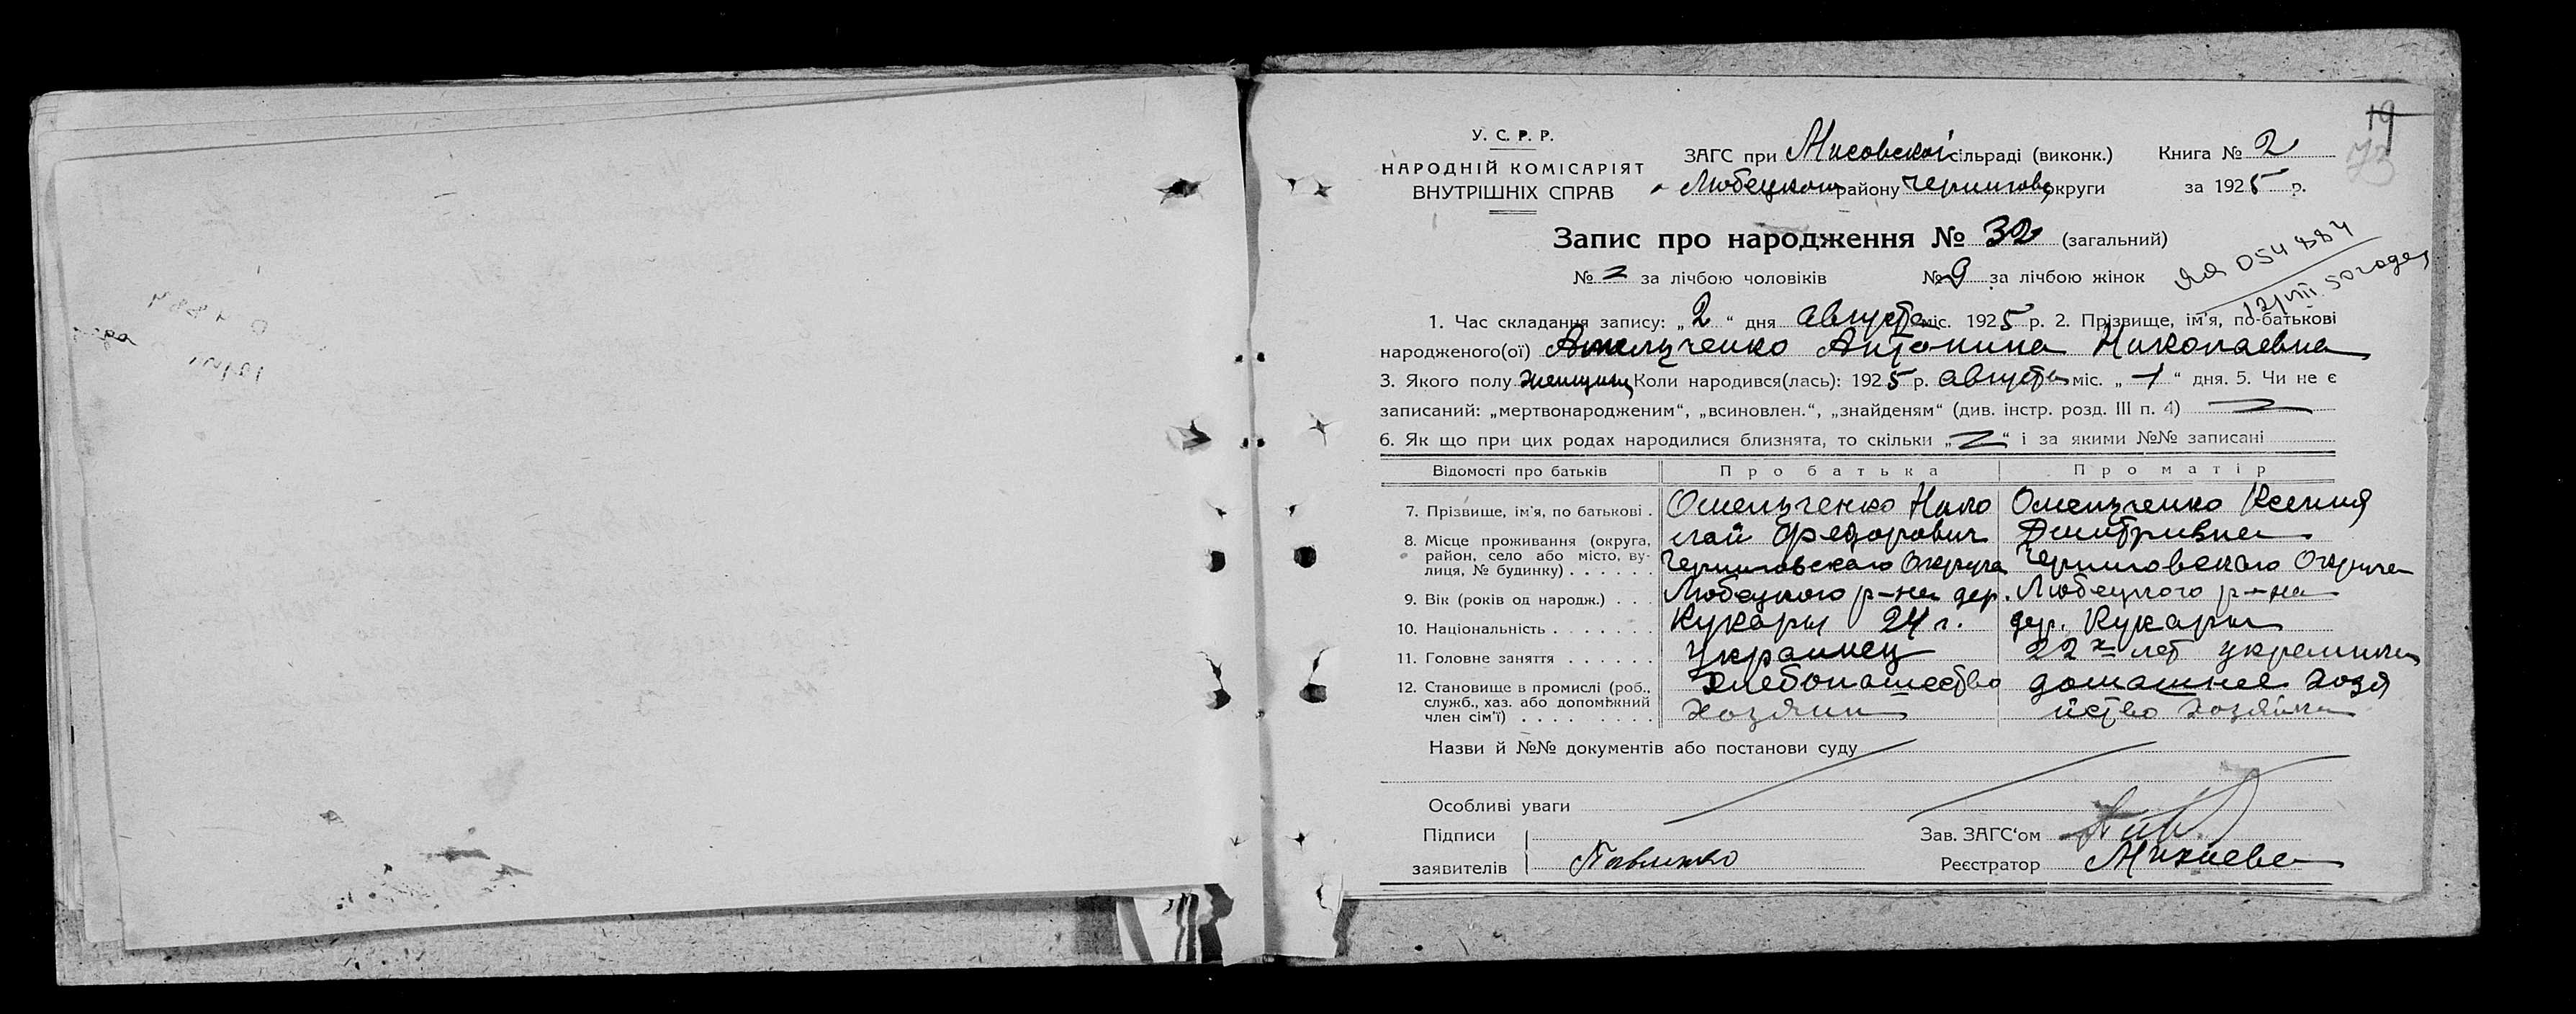 19
73
У. С. Р. Р.
НАРОДНІЙ КОМІСАРІЯТ
ВНУТРІШНІХ СПРАВ
ЗАГС при Мисовской сільраді (виконк.) Книга № 2
Любецкого району Чернигов округи за 1925 р.
Запис про народження № 32 (загальний)
№ за лічбою чоловіків № 9 за лічбою жінок
ЯЯ 054884
12/VIII 50 года
1. Час складання запису: „2“ дня августа міс. 1925 р. 2. Прізвище, ім'я, по-батькові
народженого(ої) Амельченко Антонина Николаевна
3. Якого полу женщины Коли народився(лась): 1925 р. августа міс. „1“ дня. 5. Чи не є
записаний: „мертвонародженим“, „всиновлен.“, „знайденям“ (див. інстр. розд. III п. 4)
6. Як що при цих родах народилися близнята, то скільки „ “ і за якими №№ записані
Відомості про батьків Про батька Про матір
7. Прізвище, ім'я, по батькові . Омельченко Нико Омельченко Ксения
8. Місце проживання (округа, район, село або місто, вулиця, № будинку) . . . . . . лай Федорович Дмитривна
Черниговскаго Округа Черниговскаго Округа
9. Вік (років од народж.) . . . Любецкого р-на дер. Любецкого р-на
10. Національність . . . . . . . Кукары 24 г. дер. Кукары
11. Головне заняття . . . . . . Украинец 22х лет украинка
12. Становище в промислі (роб., служб., хаз. або допоміжний член сім'ї) . . . . . . . . Хлебопашество домашнее хозя
хозяин йство хозяйка
Назви й №№ документів або постанови суду
Особливі уваги
Підписи Зав. ЗАГС'ом
заявителів Павленко Реєстратор Михеева